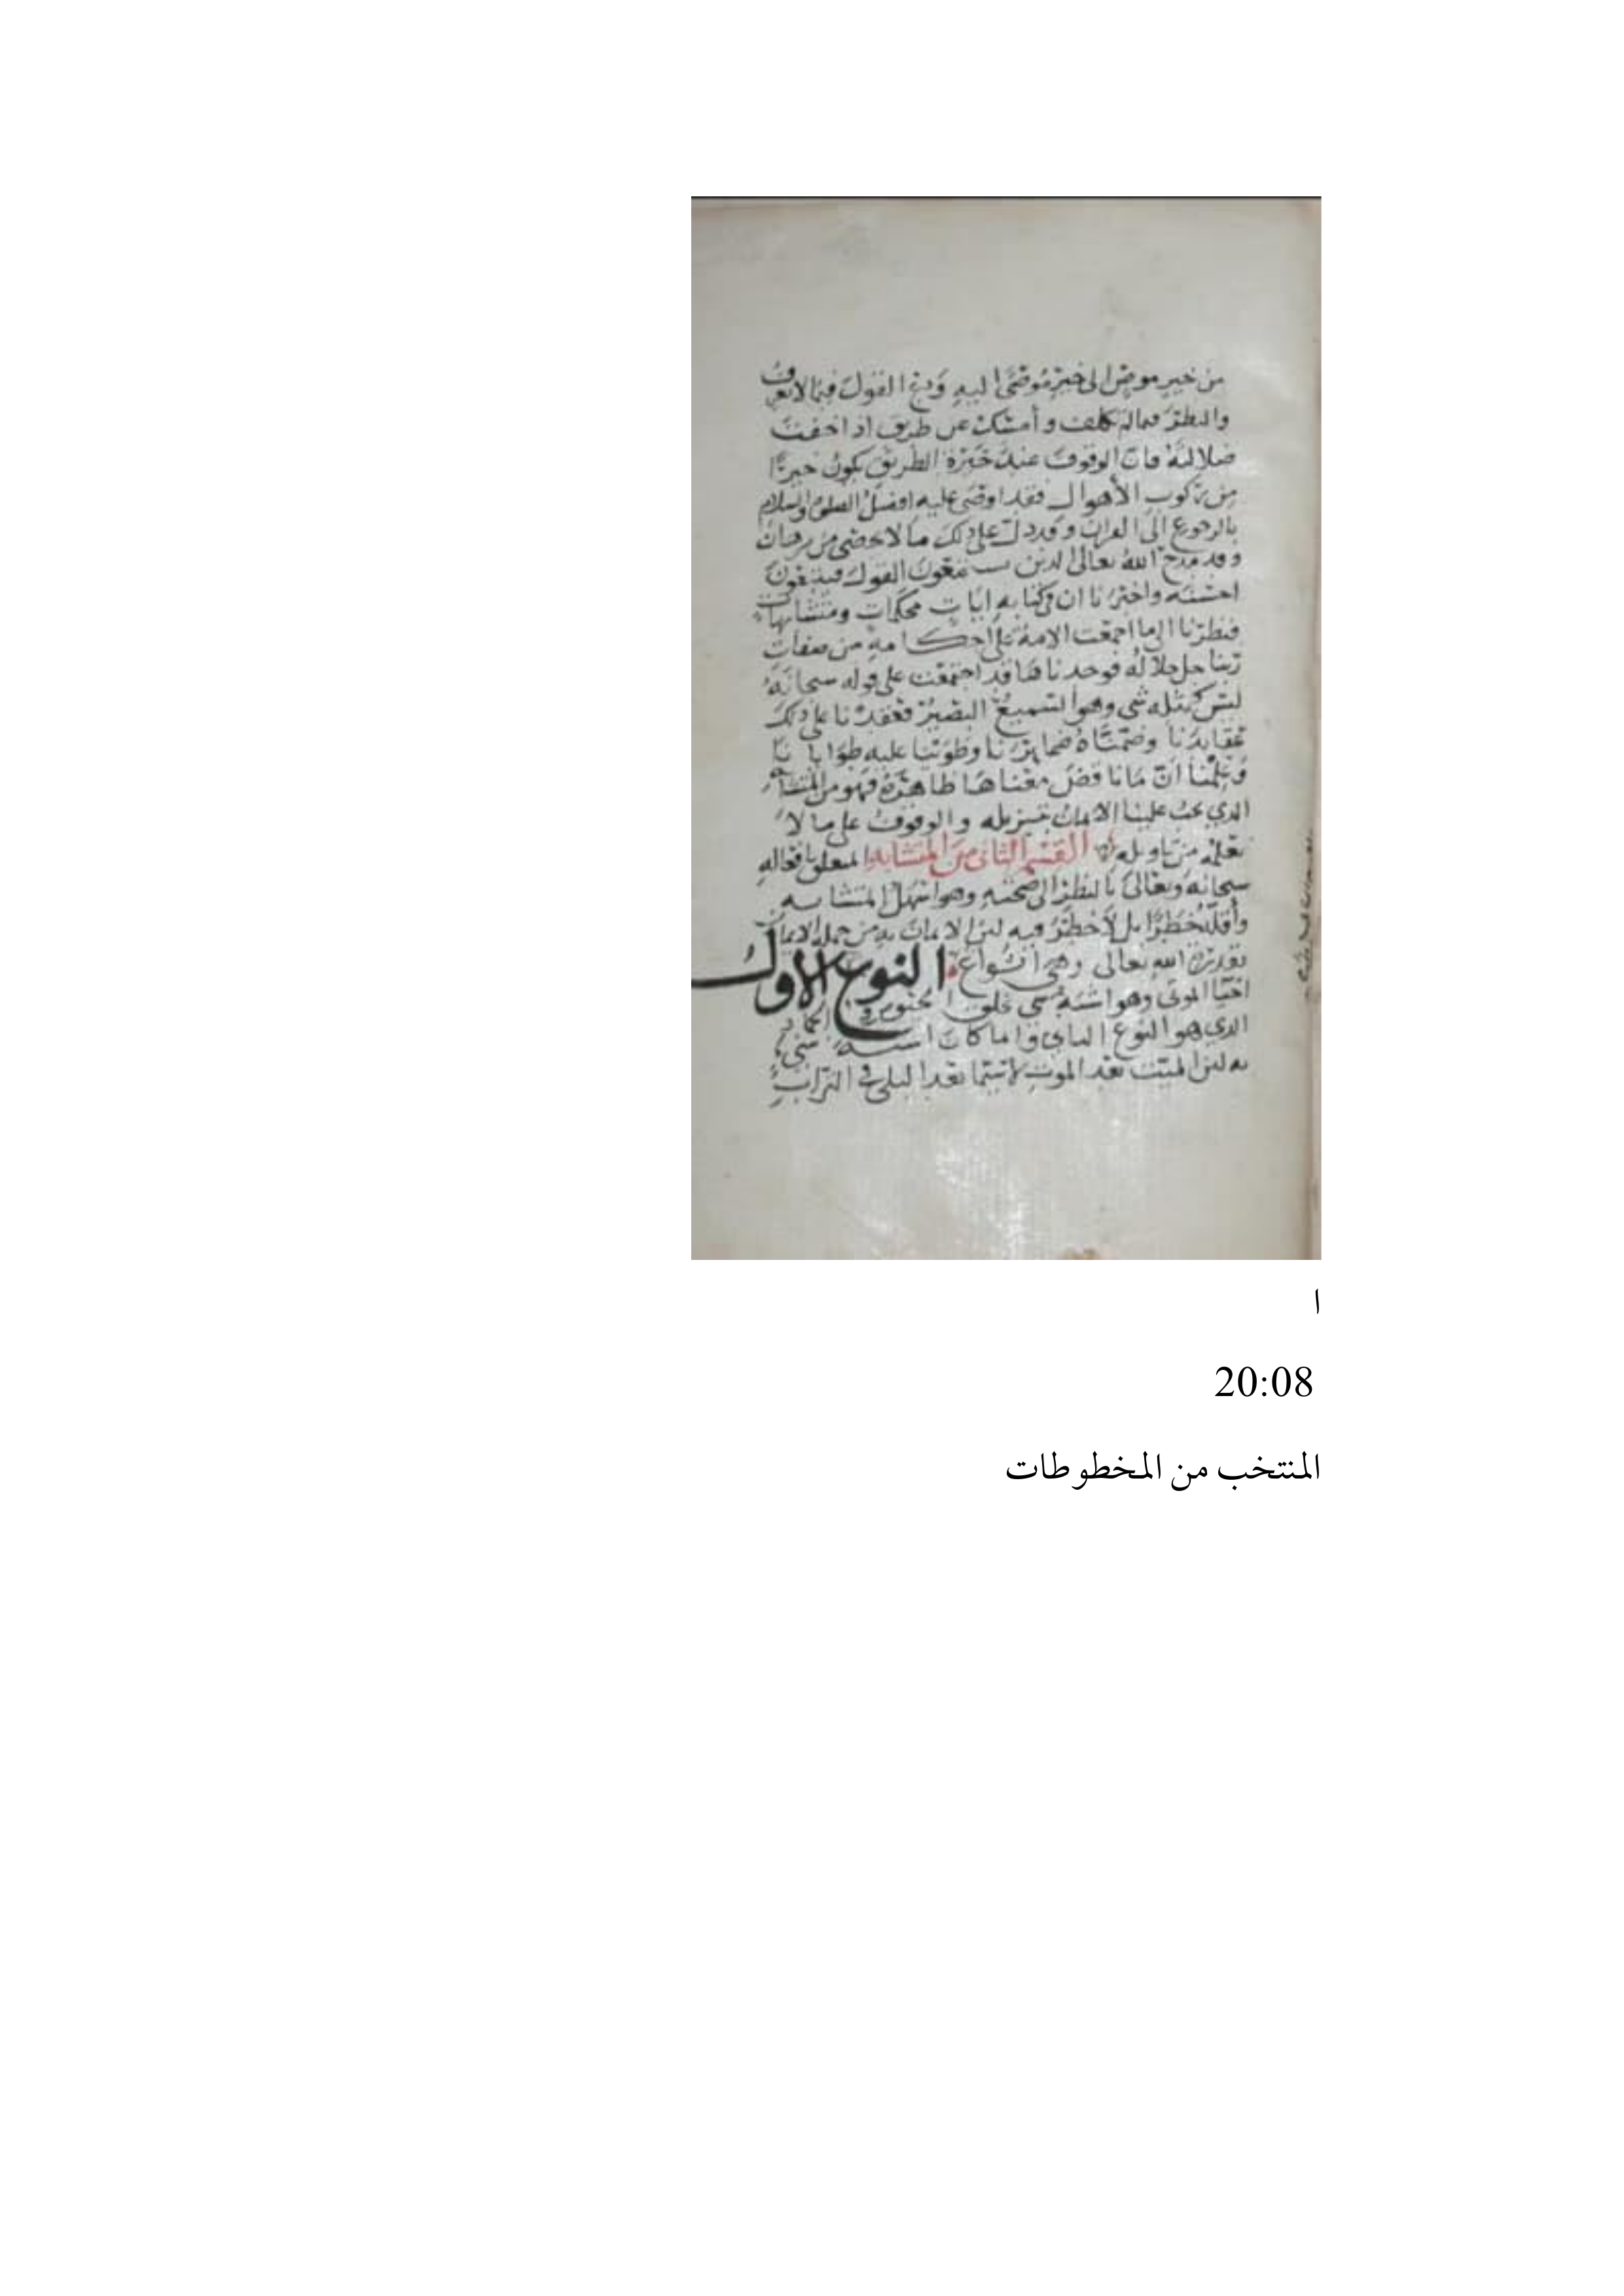 من خير موصٍ الى خير موصى اليه ودع القول فيما لا تعرف
والنظر فيما لم تكلف وأمسك عن طريق اذا خفت
ضلالته فان الوقوف عند حيرة الطريق يكون خيرًا
من ركوب الأهوال فقد اوصى عليه افضل الصلوة والسلام
بالرجوع الى القران وقد دل على ذلك ما لا يحصى من برهان
وقد مدح الله تعالى الذين يستمعون القول فيتبعون
احسنه واخبرنا ان في كتابه ايات محكمات ومتشابهات
فنظرنا الى ما اجمعت الامة على احكامه من صفات
ربنا جل جلاله فوجدنا قد اجتمعت على قوله سبحانه
ليس كمثله شي وهو السميع البصير فعقدنا على ذلك
عقايدنا وضمناه ضمايرنا وطوينا عليه طوايانا
وعلمنا ان ما ناقض معناها ظاهره فهو من المتشابه
الذي يجب علينا الايمان بتنزيله والوقوف على ما لا
نعلمه من تاويله القسم الثاني من المتشابه المتعلق بافعاله
سبحانه وتعالى بالنظر الى صحته وهو اسهل المتشابه
وأقله خطرًا بل لا خطر فيه لان الايمان به من جملة الايمان
بقدرة الله تعالى وهي انواع النوع الاول
احيا الموتى وهو اشبه شي بخلق
الذي هو النوع الثاني وانما كان اشبه شي
به لان الميت بعد الموت لا سيما بعد البلى في التراب
ا
20:08
المنتخب من المخطوطات